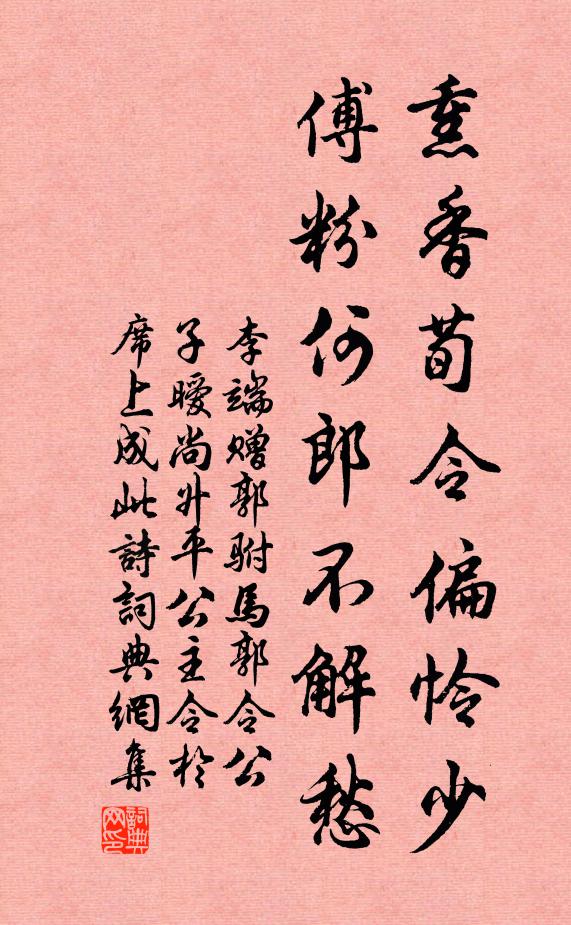 熏香荀令偏怜少
傅粉何郎不解愁
李端赠郭駙馬郭令公
子曖尚升平公主令於
席上成此詩詞典網集
詞典
网印